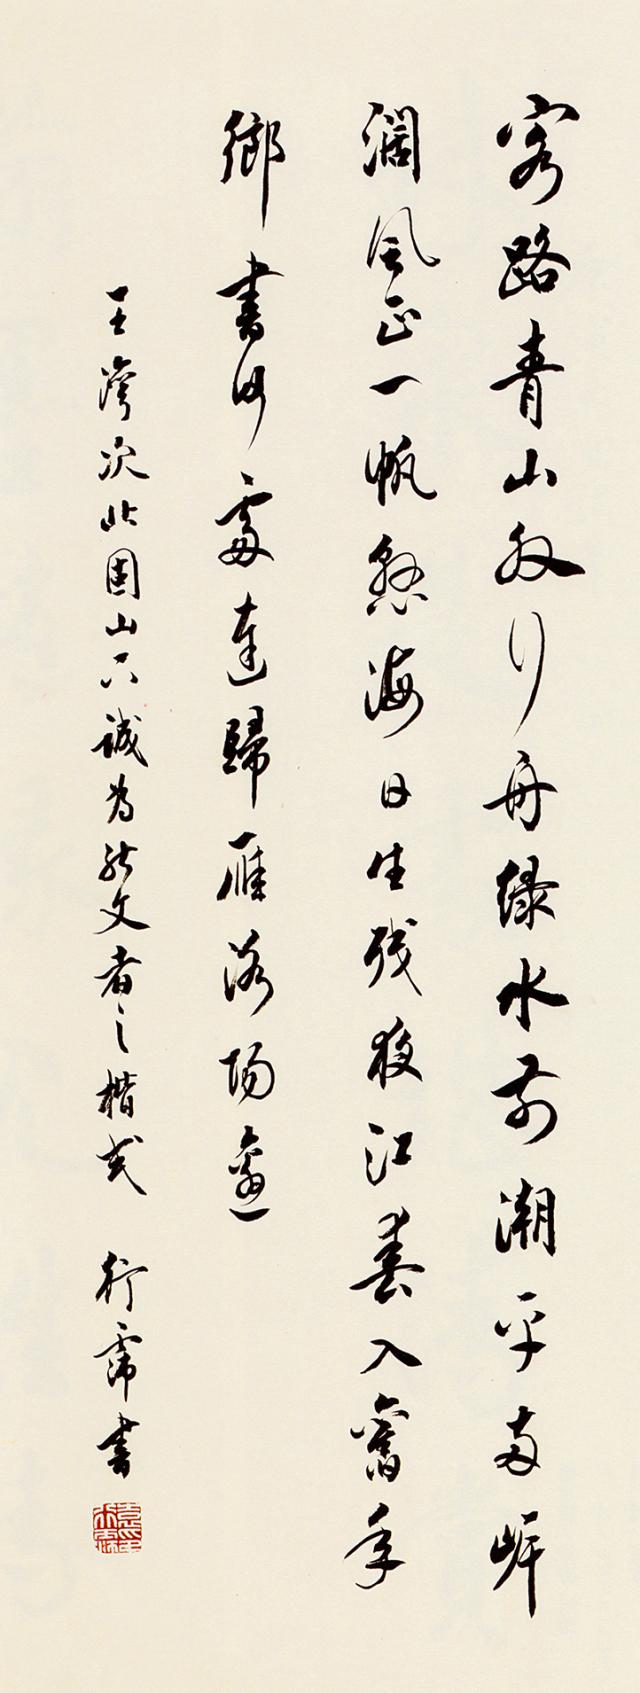 客路青山外行舟緑水前潮平两岸
濶風正一帆懸海日生殘夜江春入舊年
鄉書何處達歸雁洛陽邊
王灣次北固山下誠為能文者之楷式 行霈書